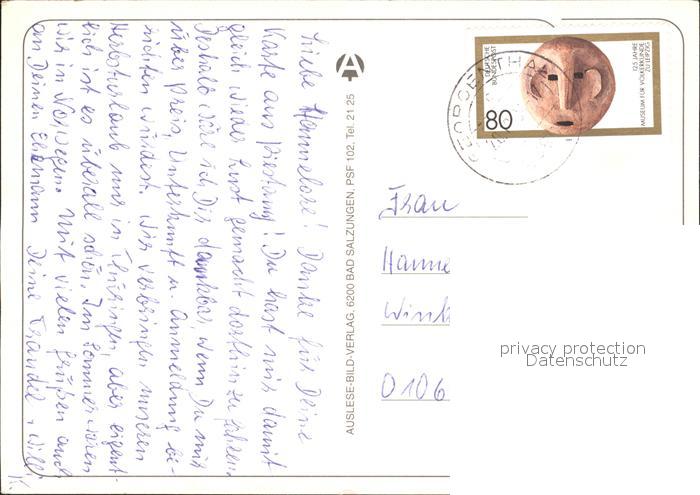 Liebe Hannelore! Danke für Deine
Karte aus Pirstong! Du hast mir damit
gleich wieder Lust gemacht dorthin zu fahren.
Deshalb wäre ich Dir dankbar, wenn Du mir
über Preis, Unterkunft u. Anmeldung be-
richten würdest. Wir verbringen unseren
Herbsturlaub nur in Thüringen, aber eigent-
lich ist es überall schön. Im Sommer waren
wir in Norwegen. Mit vielen Grüßen auch
an Deinen Ehemann Deine Traudel u. Willi
A
AUSLESE-BILD-VERLAG, 6200 BAD SALZUNGEN, PSF 102, Tel. 21 25
DEUTSCHE
BUNDESPOST
80
125 JAHRE
MUSEUM FÜR VÖLKERKUNDE
ZU LEIPZIG
GEORGENTHAL
Frau
Hanne
Wink
O 106
privacy protection
Datenschutz